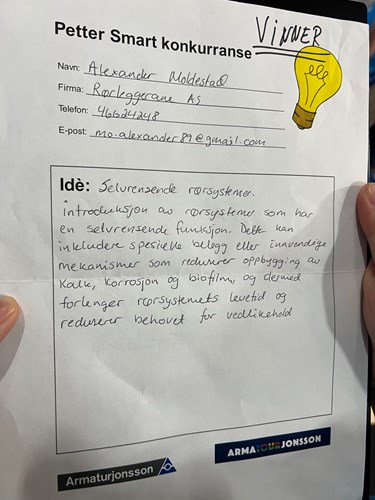 VINNER
Petter Smart konkurranse
Navn: Alexander Moldestad
Firma: Rørleggerane AS
Telefon: 46624248
E-post: mo.alexander89@gmail.com
Idè: Selvrensende rørsystemer.
introduksjon av rørsystemer som har
en selvrensende funksjon. Dette kan
inkludere spesielle belegg eller innvendige
mekanismer som reduserer oppbygging av
Kalk, korrosjon og biofilm, og dermed
forlenger rørsystemets levetid og
reduserer behovet for vedlikehold
Armaturjonsson
ARMATOURJONSSON